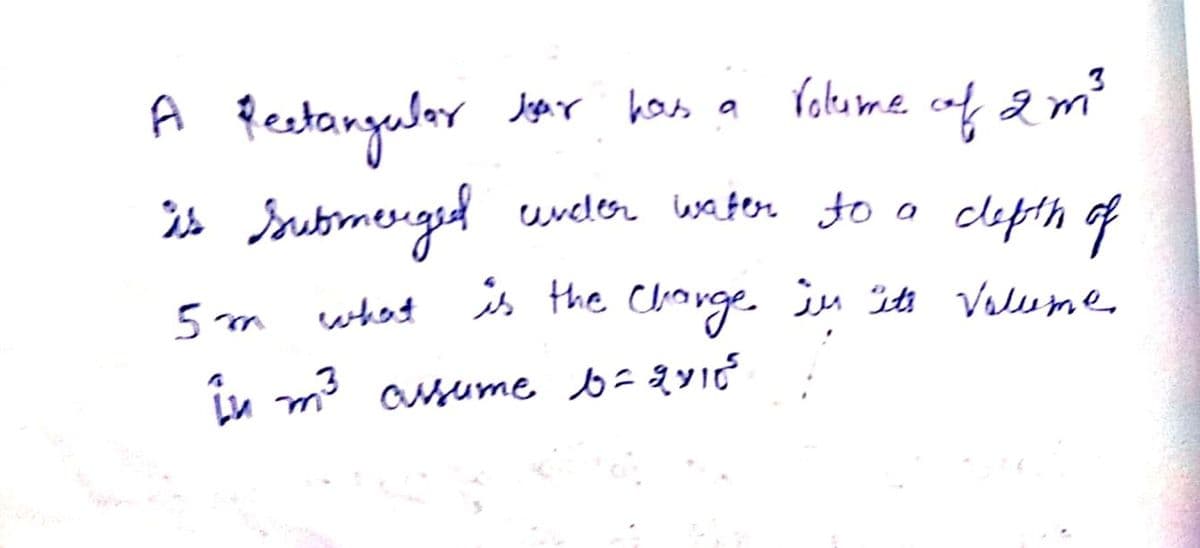 A Rectangular bar has a Volume of 2 m³
is Submerged under water to a depth of
5 m what is the Change in its Volume
in m³ assume b = 2×10⁵